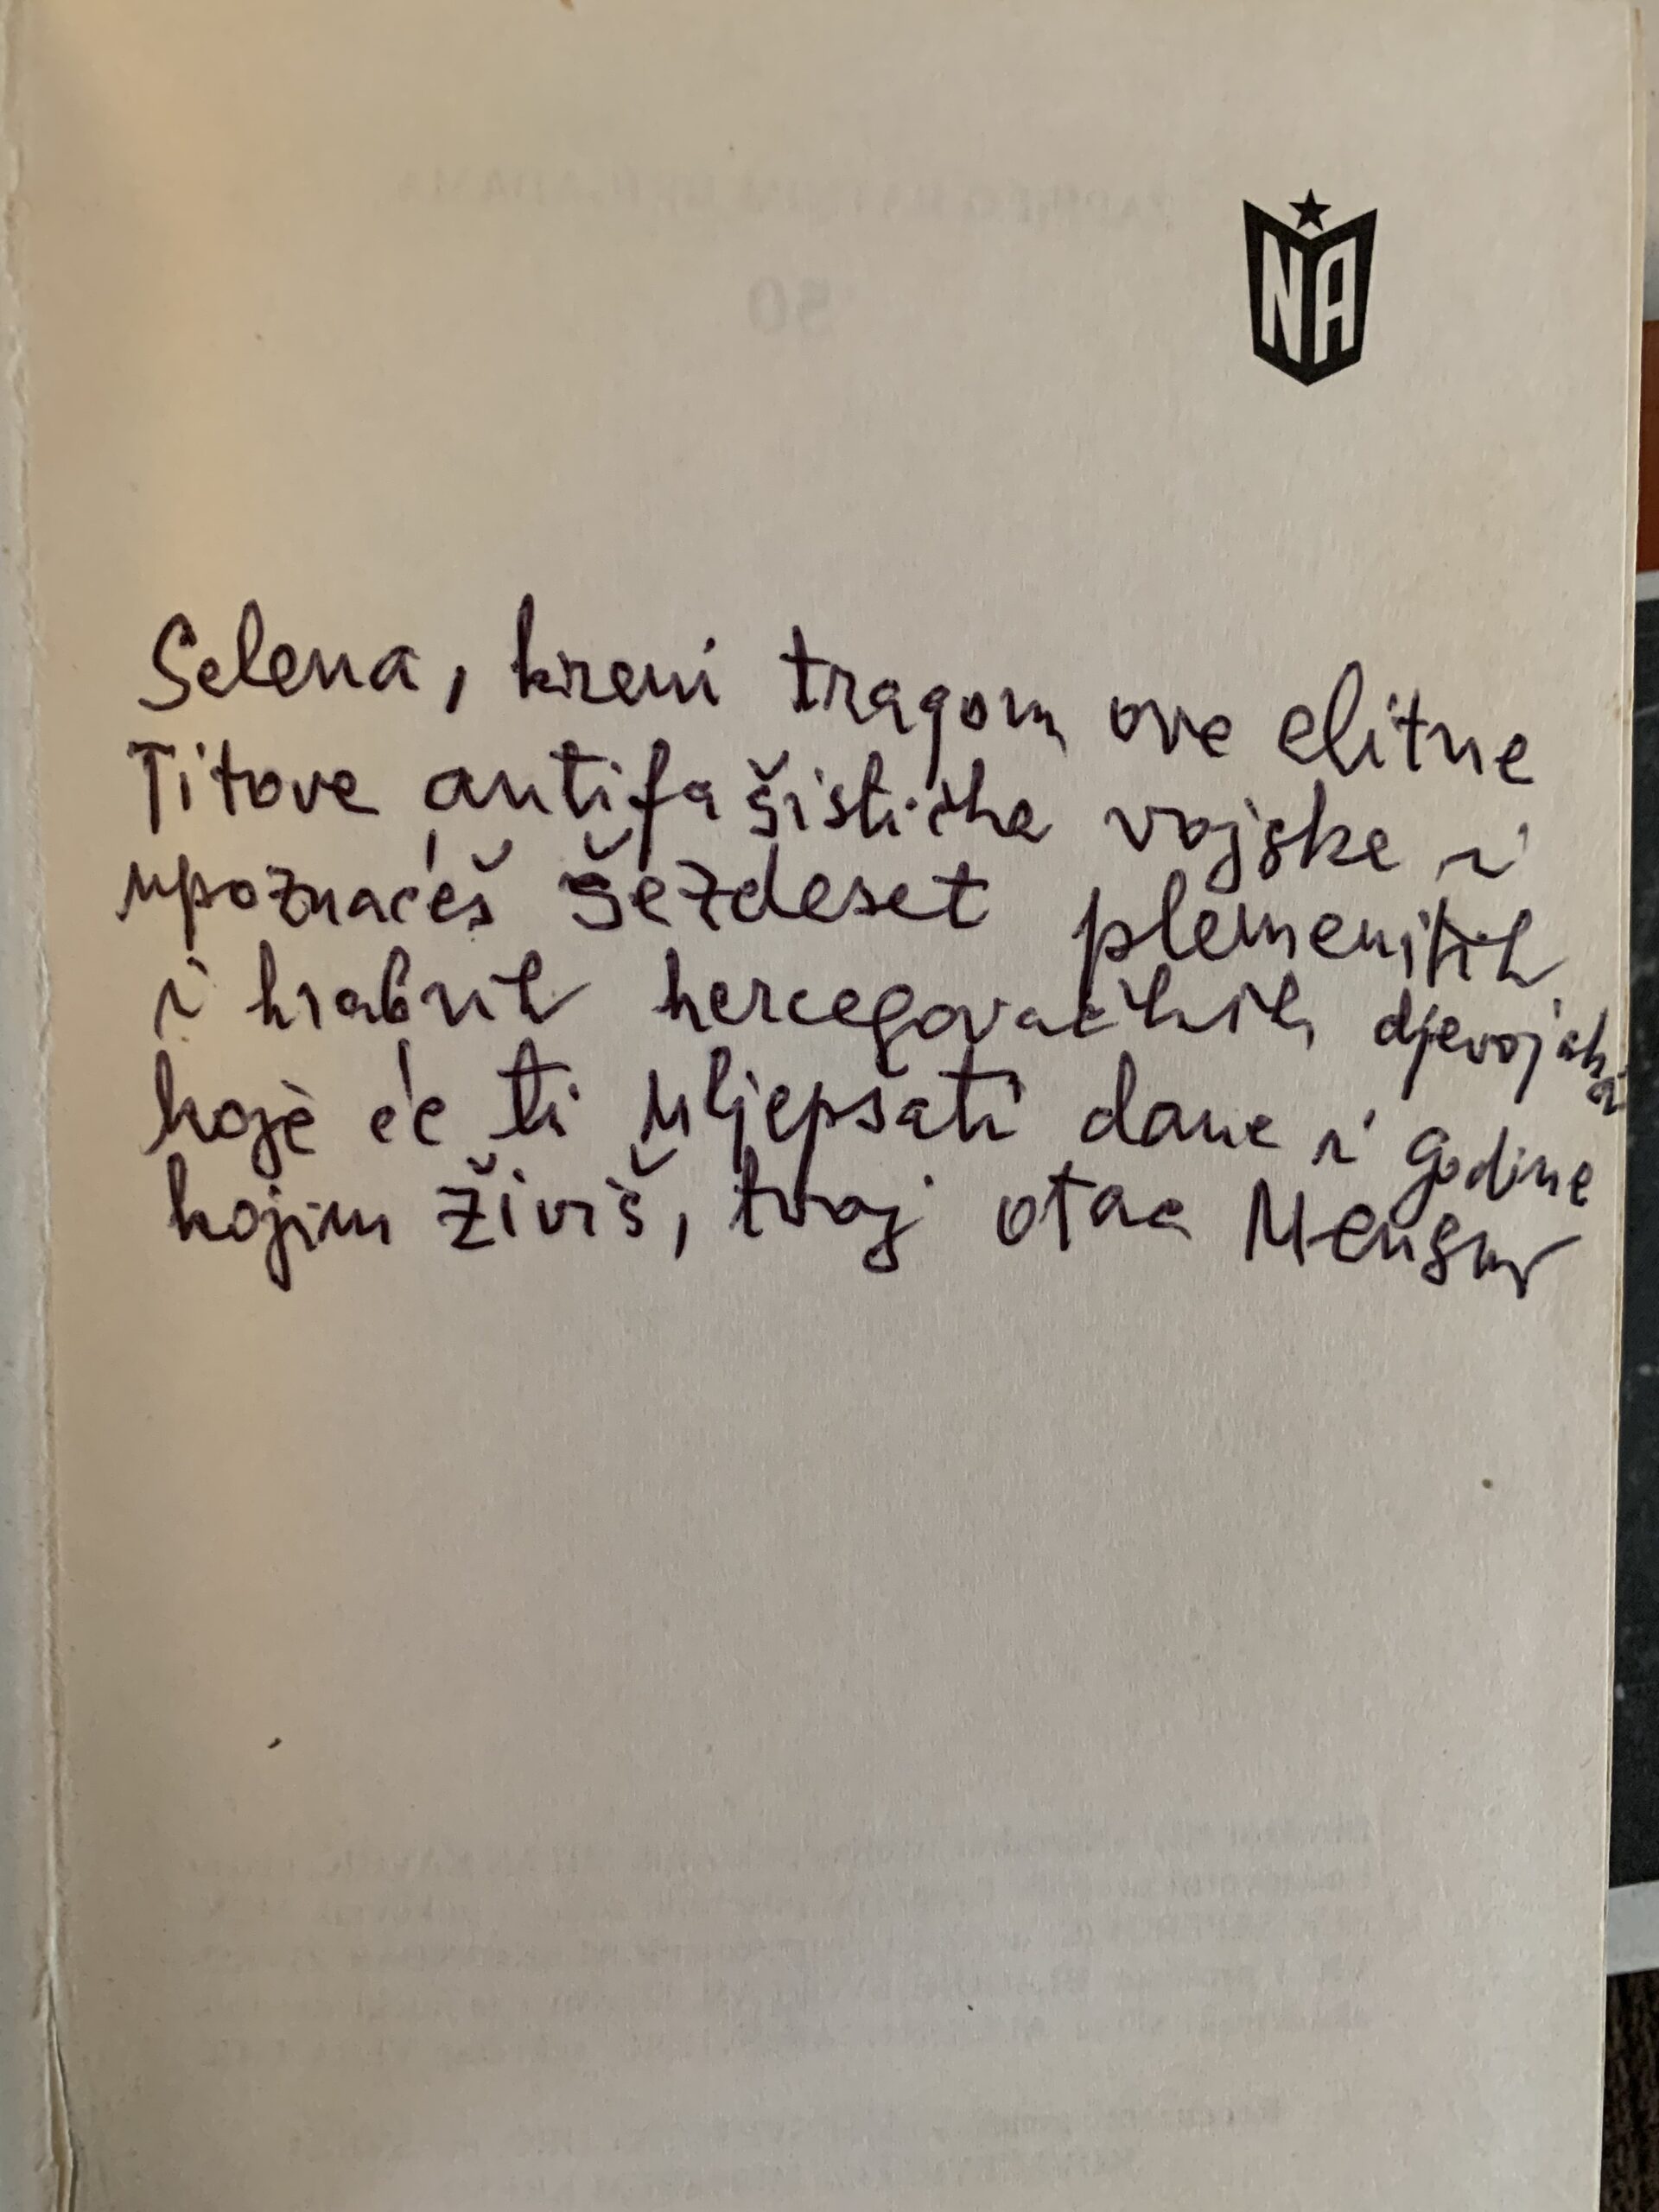 NA
Selena, kreni tragom ove elitne
Titove antifašističke vojske i
upoznaćeš šezdeset plemenitih
i hrabrih hercegovačkih djevojaka
koje će ti uljepšati dane i godine
kojim živiš, tvoj otac Mensur